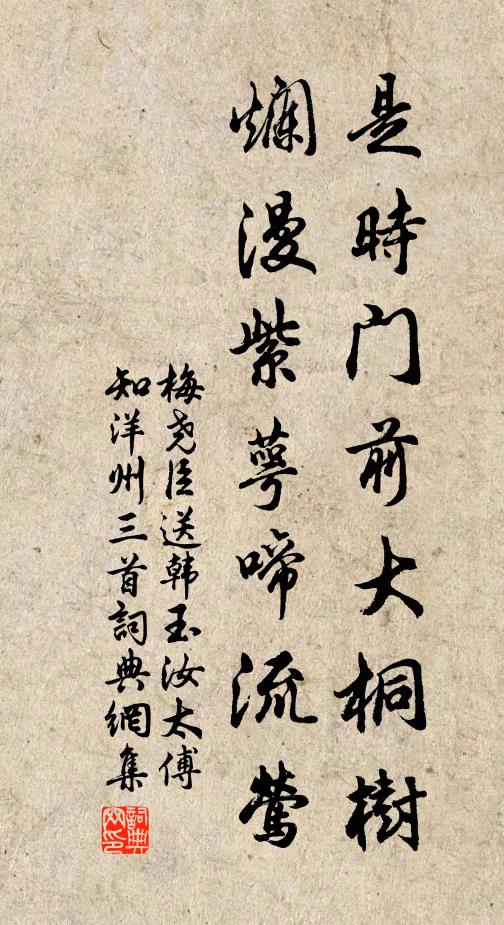 是時门前大桐樹
爛漫紫萼啼流莺
梅尧臣送韩玉汝太傅
知洋州三首詞典網集
詞典
网印